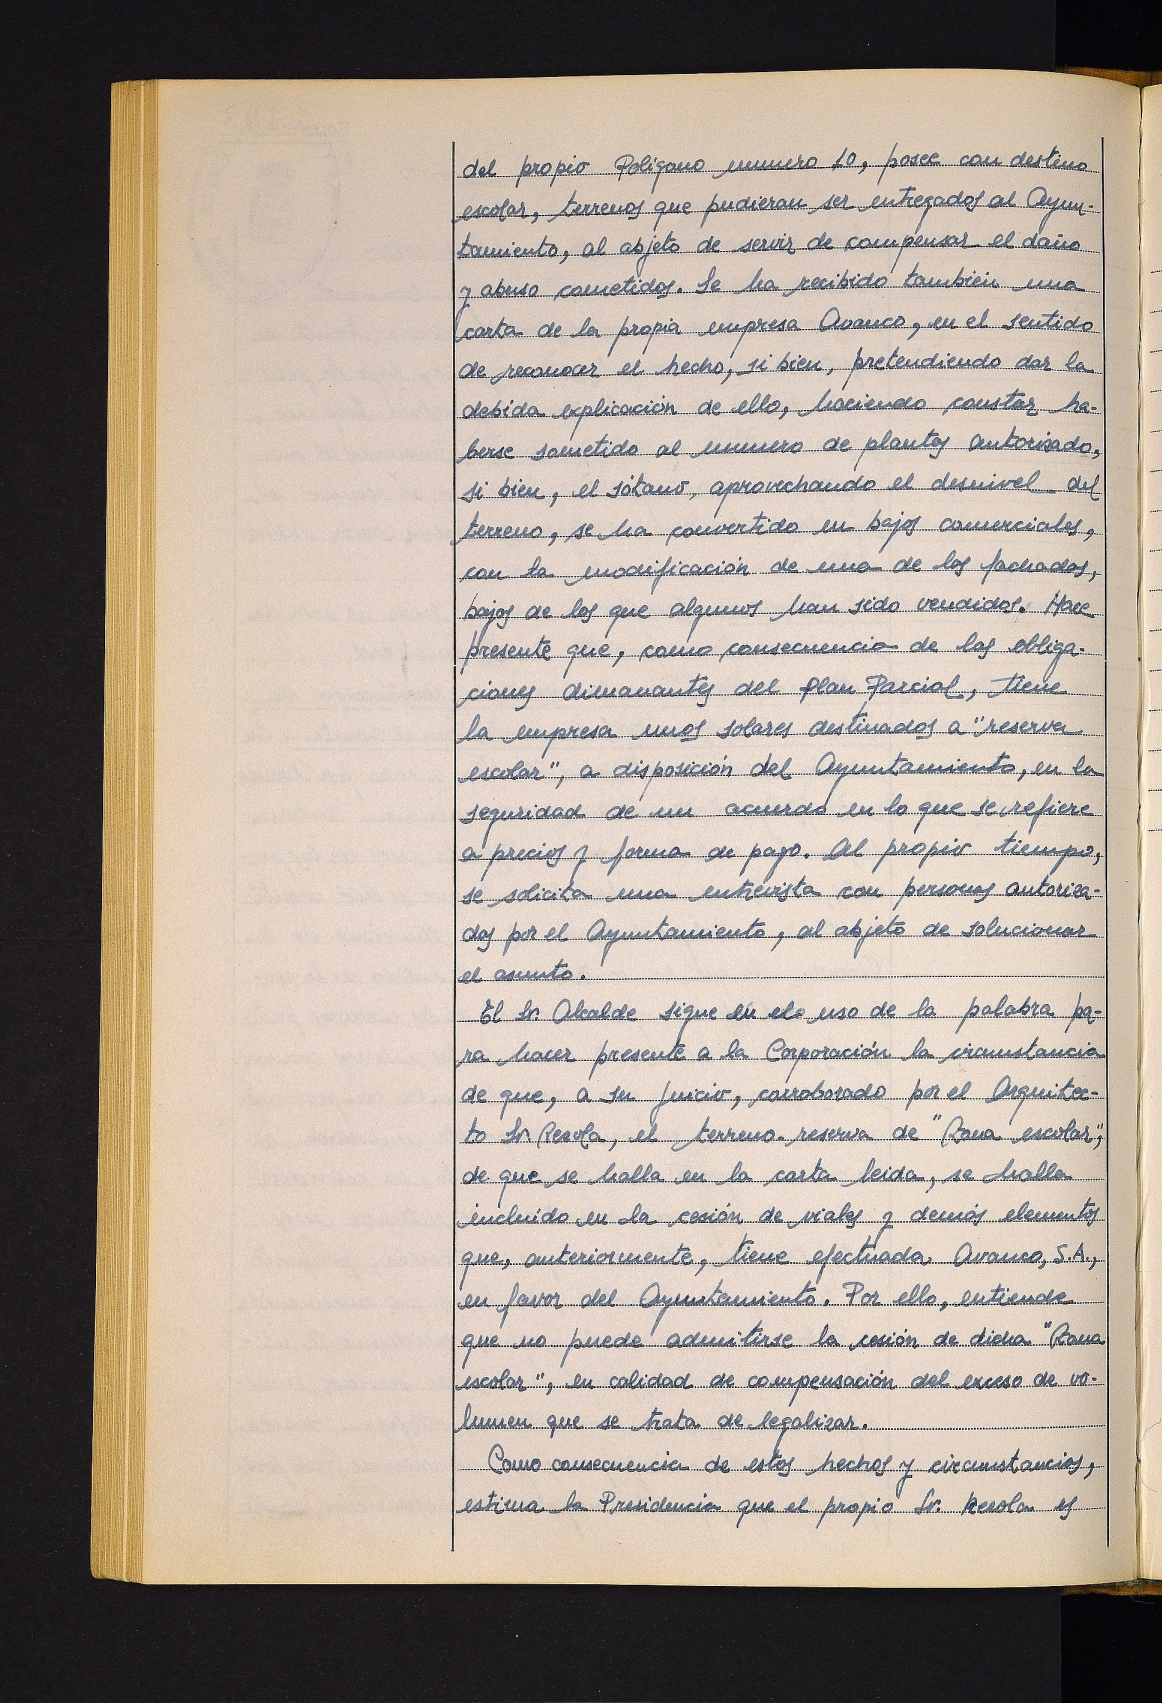 del propio Polígono número 10, posee con destino
escolar, terrenos que pudieran ser entregados al Ayun-
tamiento, al objeto de servir de compensar el daño
y abuso cometidos. Se ha recibido también una
carta de la propia empresa Avanco, en el sentido
de reconocer el hecho, si bien, pretendiendo dar la
debida explicación de ello, haciendo constar ha-
berse sometido al número de plantas autorizado,
si bien, el sótano, aprovechando el desnivel del
terreno, se ha convertido en bajos comerciales,
con la modificación de una de las fachadas,
bajos de los que algunos han sido vendidos. Hace
presente que, como consecuencia de las obliga-
ciones dimanantes del Plan Parcial, tiene
la empresa unos solares destinados a "reserva
escolar", a disposición del Ayuntamiento, en la
seguridad de un acuerdo en lo que se refiere
a precios y forma de pago. Al propio tiempo,
se solicita una entrevista con personas autoriza-
das por el Ayuntamiento, al objeto de solucionar
el asunto.
El Sr. Alcalde sigue en el uso de la palabra pa-
ra hacer presente a la Corporación la circunstancia
de que, a su juicio, corroborado por el Arquitec-
to Sr. Resola, el terreno reserva de "Zona escolar",
de que se halla en la carta leida, se halla
incluído en la cesión de viales y demás elementos
que, anteriormente, tiene efectuada Avanco, S.A.,
en favor del Ayuntamiento. Por ello, entiende
que no puede admitirse la cesión de dicha "Zona
escolar", en calidad de compensación del exceso de vo-
lumen que se trata de legalizar.
Como consecuencia de estos hechos y circunstancias,
estima la Presidencia que el propio Sr. Resola es